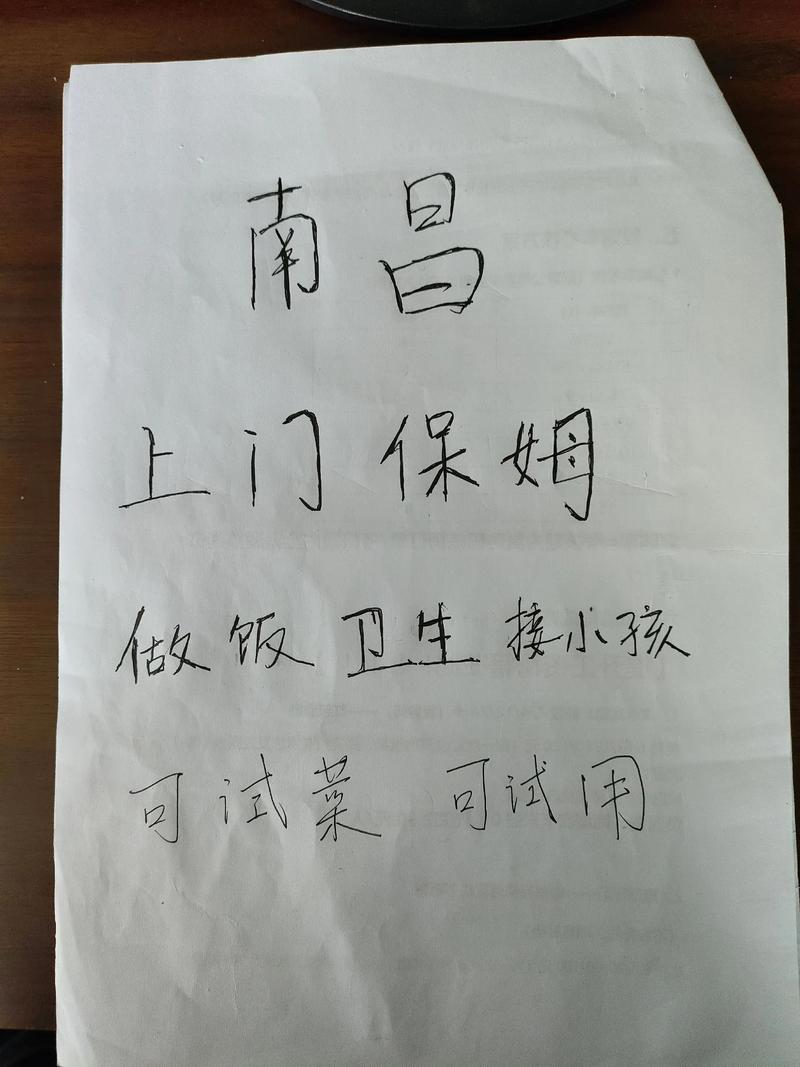 南昌
上门保姆
做饭 卫生 接小孩
可试菜 可试用